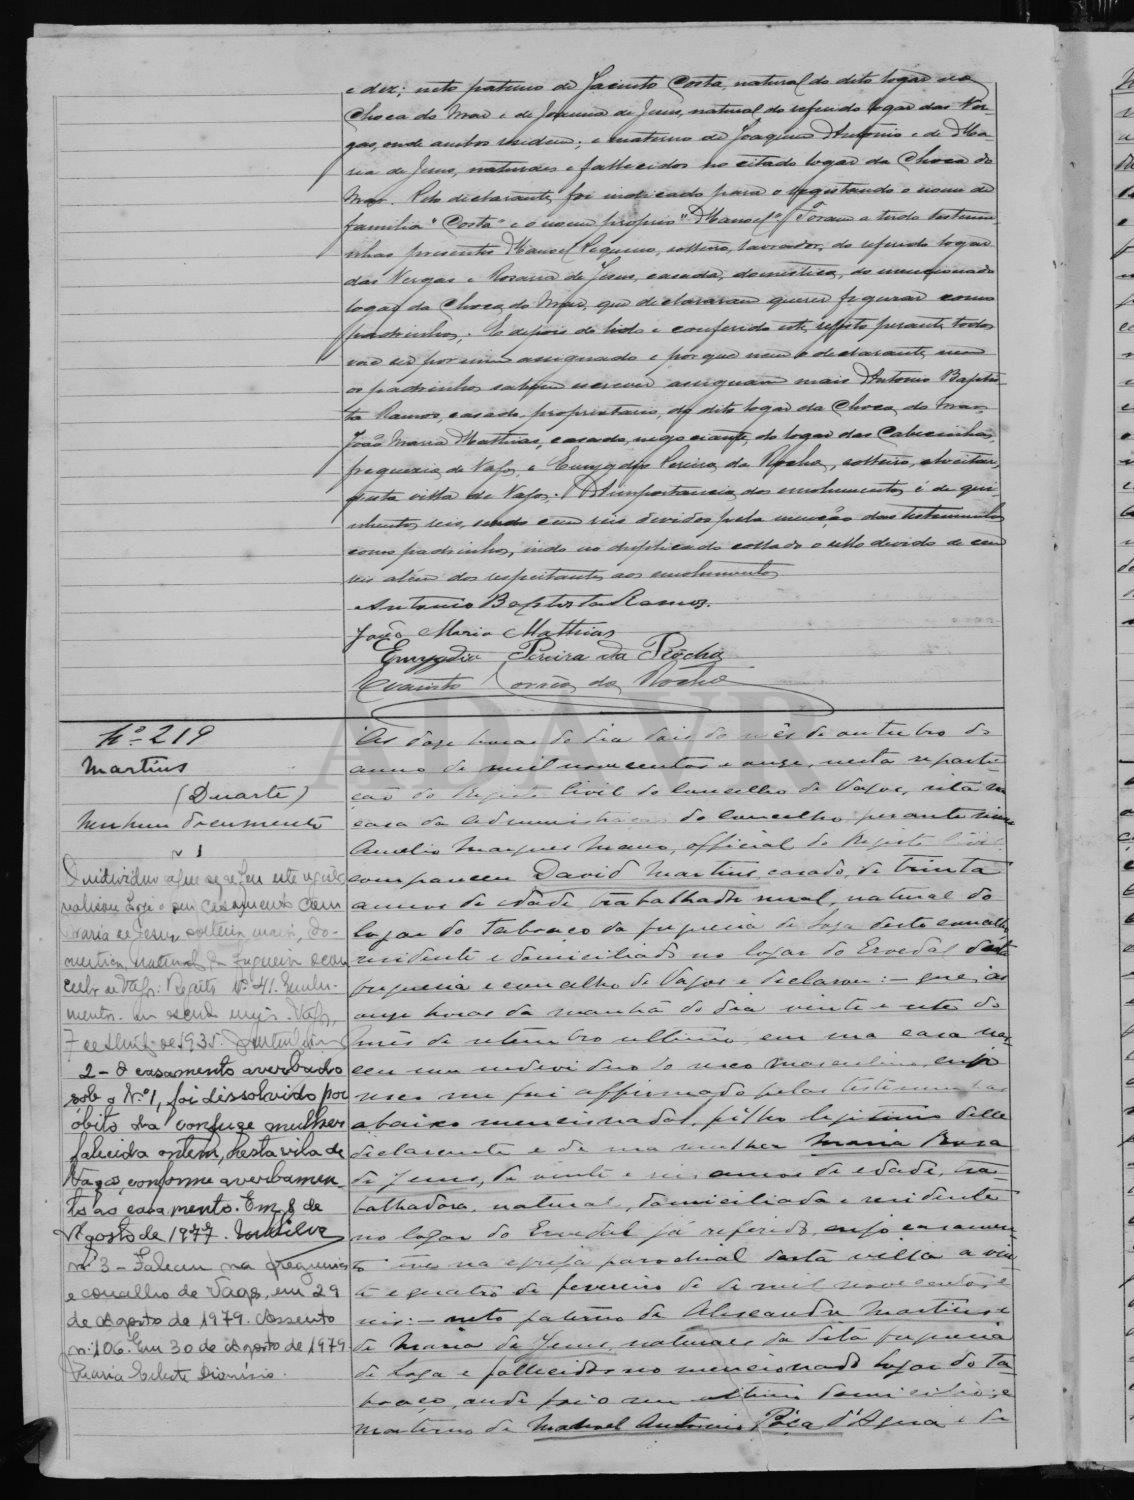 e dez; neto paterno de Jacinto Costa, natural do dito logar da
Choca do Mar e de Joanna de Jesus, natural do referido logar das Ver-
gas, onde ambos residem; e materno de Joaquim Antonio e de Ma-
ria de Jesus, naturaes e fallecidos no citado logar da Choca do
Mar. Pelo declarante foi indicado para o registando o nome de
familia "Costa" e o nome proprio "Manoel". Foram a tudo testemu-
nhas presentes Manoel Pequeno, solteiro, lavrador, do referido logar
das Vergas e Rosaria de Jesus, casada, domestica, do mencionado
logar da Choca do Mar, que declararam querer figurar como
padrinhos. E depois de lido e conferido este registo perante todos
vae ser por mim assignado e porque nem o declarante nem
os padrinhos sabem escrever assignam mais Antonio Baptis-
ta Ramos, casado, proprietario, do dito logar da Choca do Mar,
João Maria Mathias, casado, negociante, do logar das Cabecinhas,
freguezia de Vagos e Emygdio Pereira da Rocha, solteiro, solicitador,
desta villa de Vagos. A importancia dos emolumentos é de qui-
nhentos reis, sendo cem reis devidos pela menção das testemunhas
como padrinhos, indo no duplicado collado o sello devido de cem
reis além dos respeitantes aos emolumentos
Antonio Baptista Ramos.
João Maria Mathias
Emygdio Pereira da Rocha
Evaristo Corrêa da Rocha
ADAVR
Nº 219
Martins
(Duarte)
Nenhum documento
Nº 1
O individuo a que se refere este registo
realisou hoje o seu casamento com
Maria de Jesus, solteira, maior, do-
mestica, natural da freguesia e con-
celho de Vagos. Registo Nº 41. Emolu-
mentos Vagos,
7 de de 1935.
2 - O casamento averbado
sob o Nº 1, foi dissolvido por
óbito da conjuge mulher
falecida ontem, nesta vila de
Vagos, conforme averbamen-
to ao casamento. Em 8 de
Agosto de 1977.
nº 3 - Faleceu na freguesia
e concelho de Vagos, em 29
de Agosto de 1979. Assento
nº 106. Em 30 de Agosto de 1979
Maria Celeste Dionísio.
Ás doze horas do dia dois do mês de outubro do
anno de mil novecentos e onze, nesta reparti-
ção do Registo Civil do Concelho de Vagos, sita na
casa da Administração do Concelho, perante mim
Aurelio Marques Mano, official do Registo Civil
compareceu David Martins, casado, de trinta
annos de idade, trabalhador rural, natural do
lugar do Tabuaço da freguesia de Soza deste concelho
residente e domiciliado no lugar do Ervedal desta
freguesia e concelho de Vagos e declarou: - que, ás
onze horas da manhã do dia vinte e sete do
mês de setembro ultimo, em sua casa nas-
ceu um individuo do sexo masculino, cujo
sexo me foi affirmado pelas testemunhas
abaixo mencionadas, filho legitimo delle
declarante e de sua mulher Maria Rosa
de Jesus, de vinte e seis annos de edade, tra-
balhadora, natural, domiciliada e residente
no lugar do Ervedal já referido, cujo casamen-
to teve na egreja parochial desta villa a vin-
te e quatro de fevereiro de mil novecentos e
seis: - neto paterno de Alexandre Martins e
de Maria de Jesus, naturaes da dita freguesia
de Soza e fallecidos no mencionado lugar do Ta-
buaço, onde foi o seu ultimo domicilio; e
materno de Manoel Antonio Pôça d'Agua e de